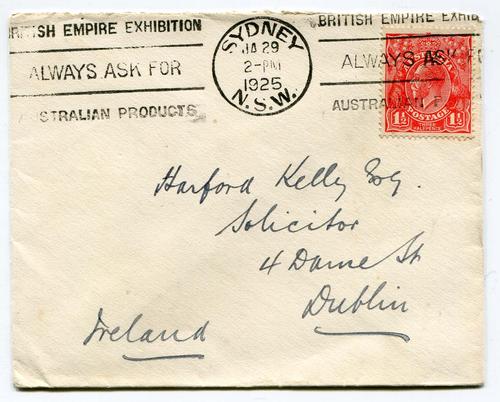 BRITISH EMPIRE EXHIBITION
ALWAYS ASK FOR
AUSTRALIAN PRODUCTS
SYDNEY
JA 29
2-PM
1925
N.S.W.
BRITISH EMPIRE EXHIB
ALWAYS ASK FO
AUSTRALIAN P
POSTAGE
1½ THREE HALFPENCE 1½
Harford Kelly Esq.
Solicitor
4 Dame St
Dublin
Ireland